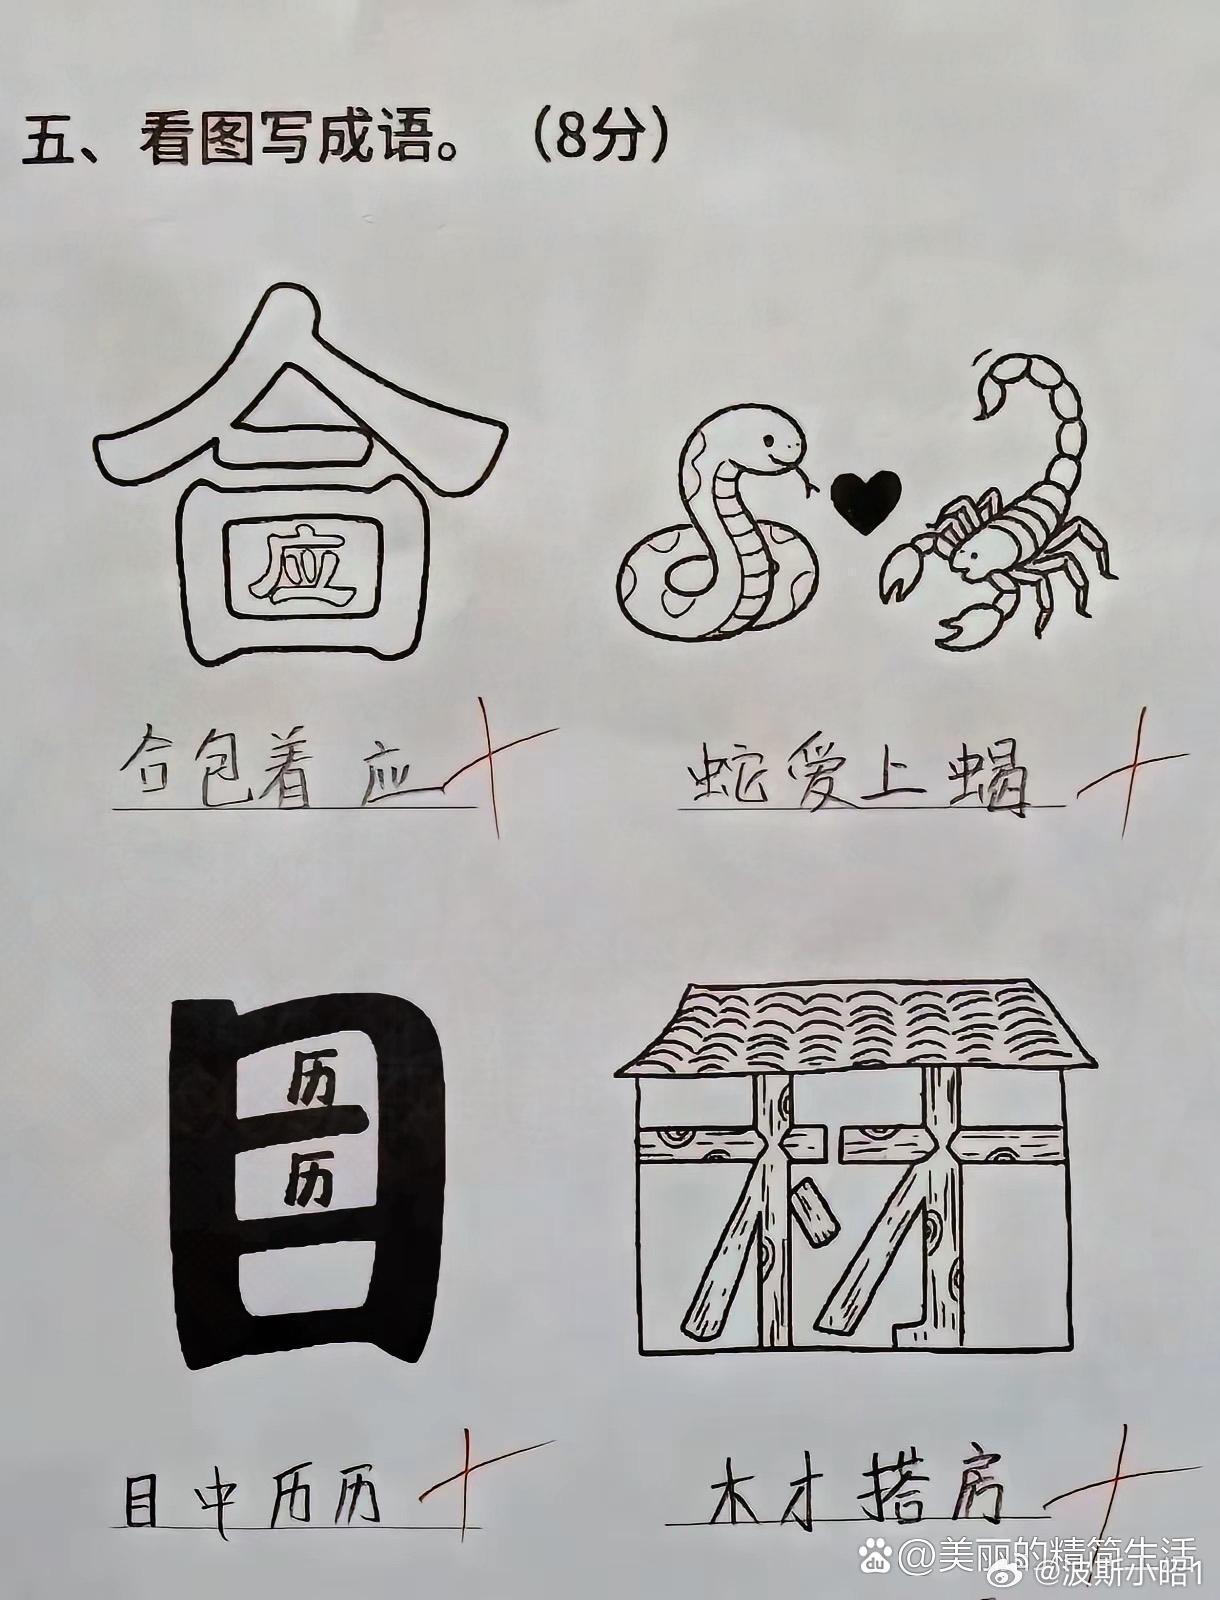 五、看图写成语。（8分）
合
应
合包着应
蛇爱上蝎
目
历
历
目中历历
木才搭房
@美丽的精简生活
@波斯小昭1